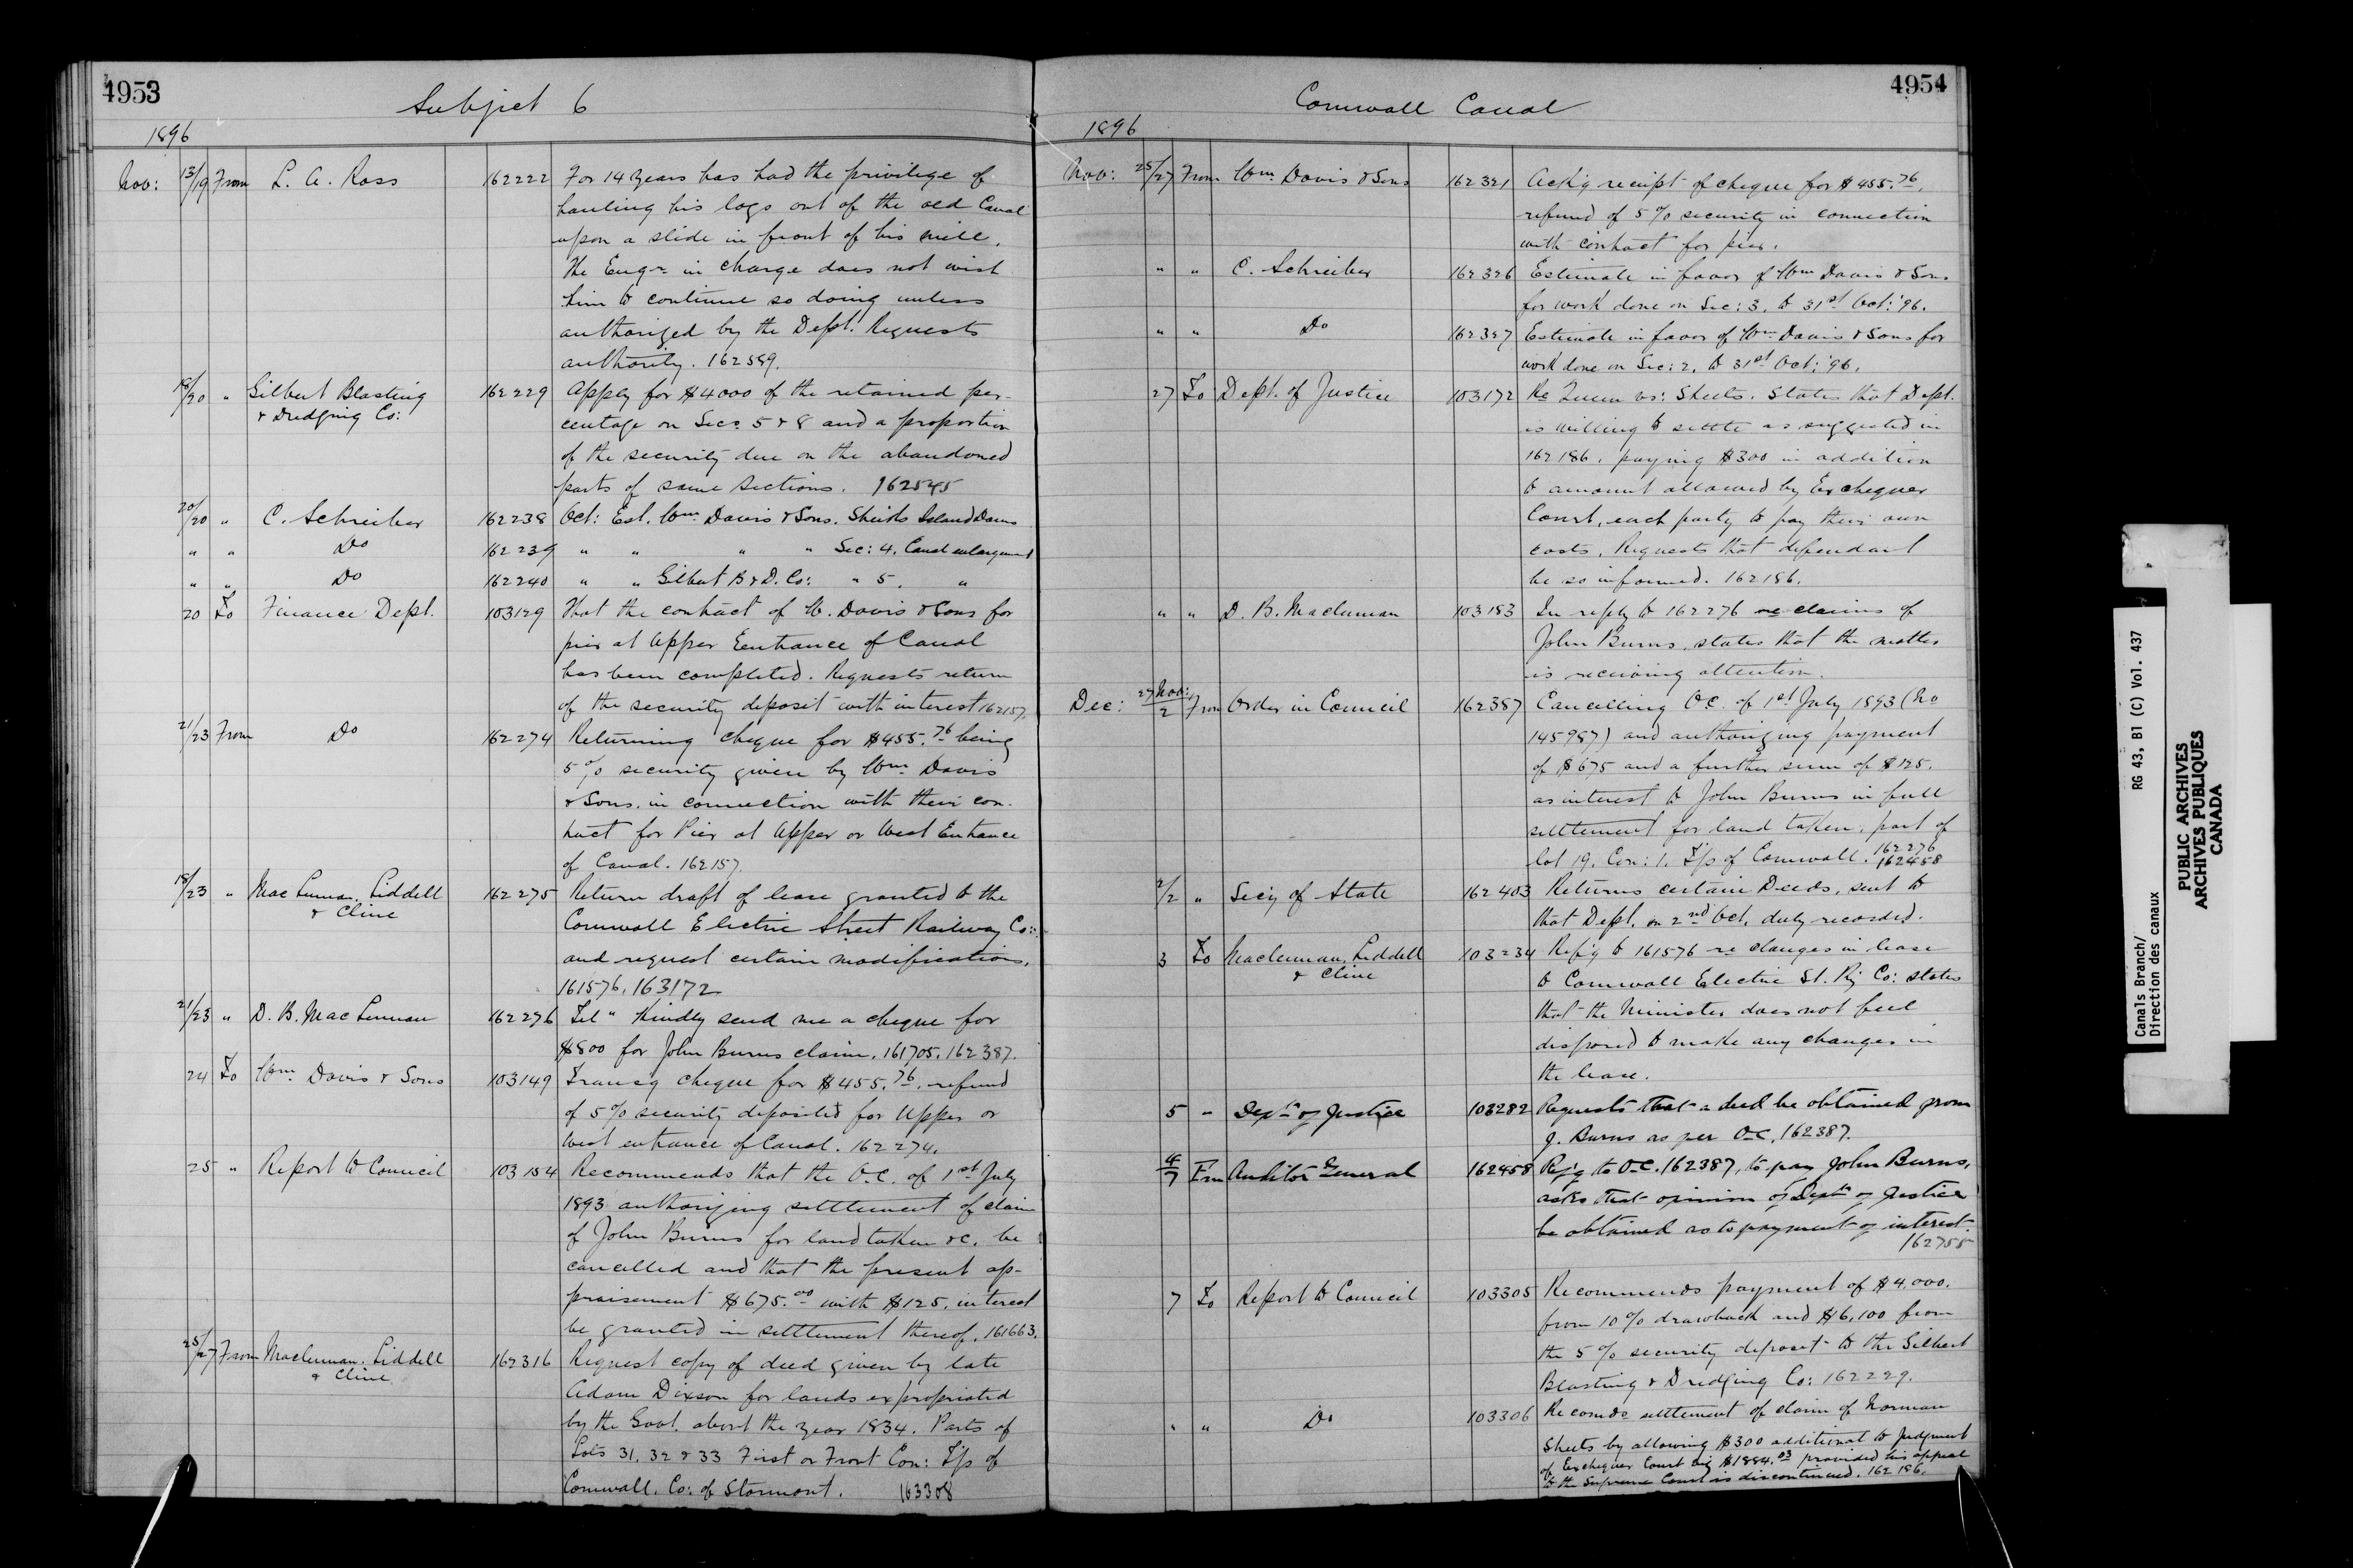 4953
Subject 6
1896
Nov: 13/19 From L. A. Ross 162222 For 14 years has had the privilege of
hauling his logs out of the old Canal
upon a slide in front of his mill.
The Engr in charge does not wish
him to continue so doing unless
authorized by the Dept. Requests
authority. 162589.
18/20 " Gilbert Blasting 162229 Apply for $4000 of the retained per-
& Dredging Co: centage on Secs 5 & 8 and a proportion
of the security due on the abandoned
parts of same sections. 162545
20/20 " C. Schreiber 162238 Oct: Est. Wm. Davis & Sons. Sheiks Island Dams
" " Do 162239 " " " " Sec: 4. Canal enlargement
" " Do 162240 " " Gilbert B & D. Co: " 5. "
20 To Finance Dept. 103129 That the contract of W. Davis & Sons for
pier at Upper Eentrance of Canal
has been completed. Requests return
of the security deposit with interest 162157.
21/23 From Do 162274 Returning cheque for $455.76 being
5% security given by Wm. Davis
& Sons. in connection with their con-
tract for Pier at Upper or West Entrance
of Canal. 162157
18/23 " MacLennan, Liddell 162275 Return draft of lease granted to the
& Cline Cornwall Electric Street Railway Co:
and request certain modifications.
161576. 163172
21/23 " D. B. MacLennan 162276 Tel " Kindly send me a cheque for
$800 for John Burns claim. 161705. 162387.
24 To Wm. Davis & Sons 103149 Transg cheque for $455.76. refund
of 5% security deposited for Upper or
West entrance of Canal. 162274.
25 " Report to Council 103154 Recommends that the O.C. of 1st July
1893 authorizing settlement of claim
of John Burns for land taken &c. be
cancelled and that the present ap-
praisement $675.00 with $125. interest
be granted in settlement thereof. 161663.
25/27 From Maclennan, Liddell 162316 Request copy of deed given by late
& Cline Adam Dixson for lands expropriated
by the Govt. about the year 1834. Parts of
Lots 31, 32 & 33 First or Front Con: T/p of
Cornwall. Co: of Stormont. 163308
4954
Cornwall Canal
1896
Nov: 25/27 From Wm. Davis & Sons 162321 Ackg receipt of cheque for $455.76,
refund of 5% security in connection
with contract for pier.
" " C. Schreiber 162326 Estimate in favor of Wm Davis & Sons
for work done on Sec: 3. to 31st Oct: '96.
" " Do 162327 Estimate in favor of Wm Davis & Sons for
work done on Sec: 2. to 31st Oct: '96.
27 To Dept. of Justice 103172 Re Queen vs: Sheets. States that Dept.
is willing to settle as suggested in
162186. paying $300 in addition
to amount allowed by Exchequer
Court, each party to pay their own
costs. Requests that defendant
be so informed. 162186.
" " D. B. Maclennan 103183 In reply to 162276 re claims of
John Burns, states that the matter
is receiving attention.
Dec: 27 Nov:/2 From Order in Council 162387 Cancelling O.C. of 1st July 1893 (No
145987) and authorizing payment
of $675 and a further sum of $125.
as interest to John Burns in full
settlement for land taken, part of
lot 19. Con: 1. T/p of Cornwall. 162276
162458
2/2 " Secy of State 162403 Returns certain Deeds, sent to
that Dept. on 2nd Oct. duly recorded.
3 To Maclennan, Liddell 103234 Refg to 161576 re changes in lease
& Cline to Cornwall Electric St. Ry Co: states
that the Minister does not feel
disposed to make any changes in
the lease.
5 " Dept of Justice 103282 Requests that a deed be obtained from
J. Burns as per O.C. 162387.
4/7 Frm Auditor General 162458 Refg to O.C. 162387, to pay John Burns,
asks that opinion of Dept of Justice
be obtained as to payment of interest.
162755
7 To Report to Council 103305 Recommends payment of $4,000.
from 10% drawback and $6,100 from
the 5% security deposit to the Gilbert
Blasting & Dredging Co: 162229.
" " Do 103306 Recomds settlement of claim of Norman
Sheets by allowing $300 additional to judgment
of Exchequer Court big $1884.03 provided his appeal
to the Supreme Court is discontinued. 162186.
Canals Branch/
Direction des canaux
RG 43, B1 (C) Vol. 437
PUBLIC ARCHIVES
ARCHIVES PUBLIQUES
CANADA